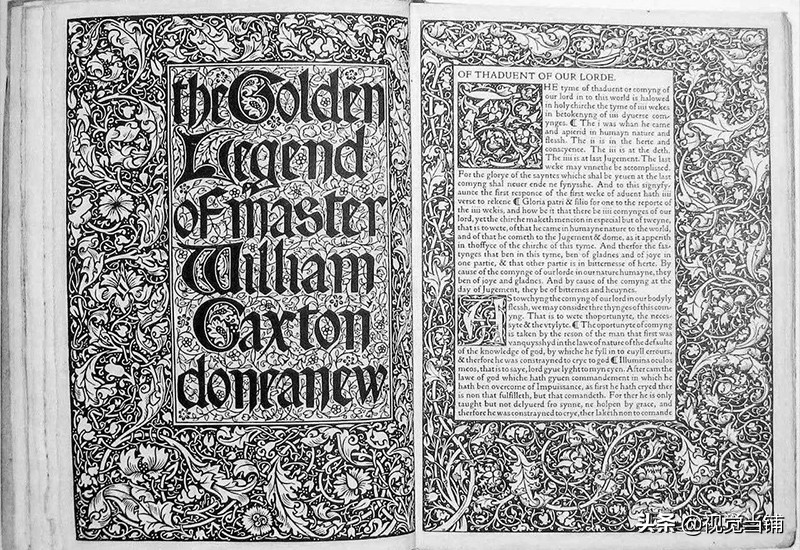 the Golden
Legend
of master
William
Caxton
done anew
OF THADUENT OF OUR LORDE.
THE tyme of thaduent or comyng of
our lord in to this world is halowed
in holy chirche the tyme of iiii wekes
in betokenyng of iiii dyuerse com-
ynges. ¶ The i was whan he came
and apierid in humayn nature and
flessh. The ii is in the herte and
conscyence. The iii is at the deth.
The iiii is at last Jugement. The last
weke may vnnethe be accomplissed.
For the glorye of the sayntes whiche shal be yeuen at the last
comyng shal neuer ende ne fynysshe. And to this signyfy-
aunce the first responce of the first weke of aduent hath iiii
verse to rekene ¶ Gloria patri & filio for one to the reporte of
the iiii wekis, and how be it that there be iiii comynges of our
lord, yet the chirche maketh mencion in especial but of tweyne,
that is to wete, of that he came in humayne nature to the world,
and of that he cometh to the Jugement & dome, as it apperith
in thoffyce of the chirche of this tyme. And therfor the fas-
tynges that ben in this tyme, ben of gladnes and of joye in
one partie, & that other partie is in bitternesse of herte. By
cause of the comynge of our lorde in our nature humayne, they
ben of joye and gladnes. And by cause of the comyng at the
day of Jugement, they be of bitternes and heuynes.
AS towchyng the comyng of our lord in our bodyly
flessh, we may considere thre thynges of this com-
yng. That is to wete thoportunyte, the neces-
syte & the vtylyte. ¶ The oportunyte of comyng
is taken by the reson of the man that first was
vanquysshyd in the lawe of nature of the defaulte
of the knowledge of god, by whiche he fyll in to euyll errours,
& therfore he was constrayned to crye to god ¶ Illumina oculos
meos, that is to saye, lord gyue lyght to myn eyen. After cam the
lawe of god whiche hath gyuen commandement in which he
hath ben overcome of Impuissance, as first he hath cryed ther
is non that fulfilleth, but that comandeth. For ther he is only
taught but not delyuerd fro synne, ne holpen by grace, and
therfore he was constrayned to crye, ther lacketh non to comande
头条 @视觉当铺